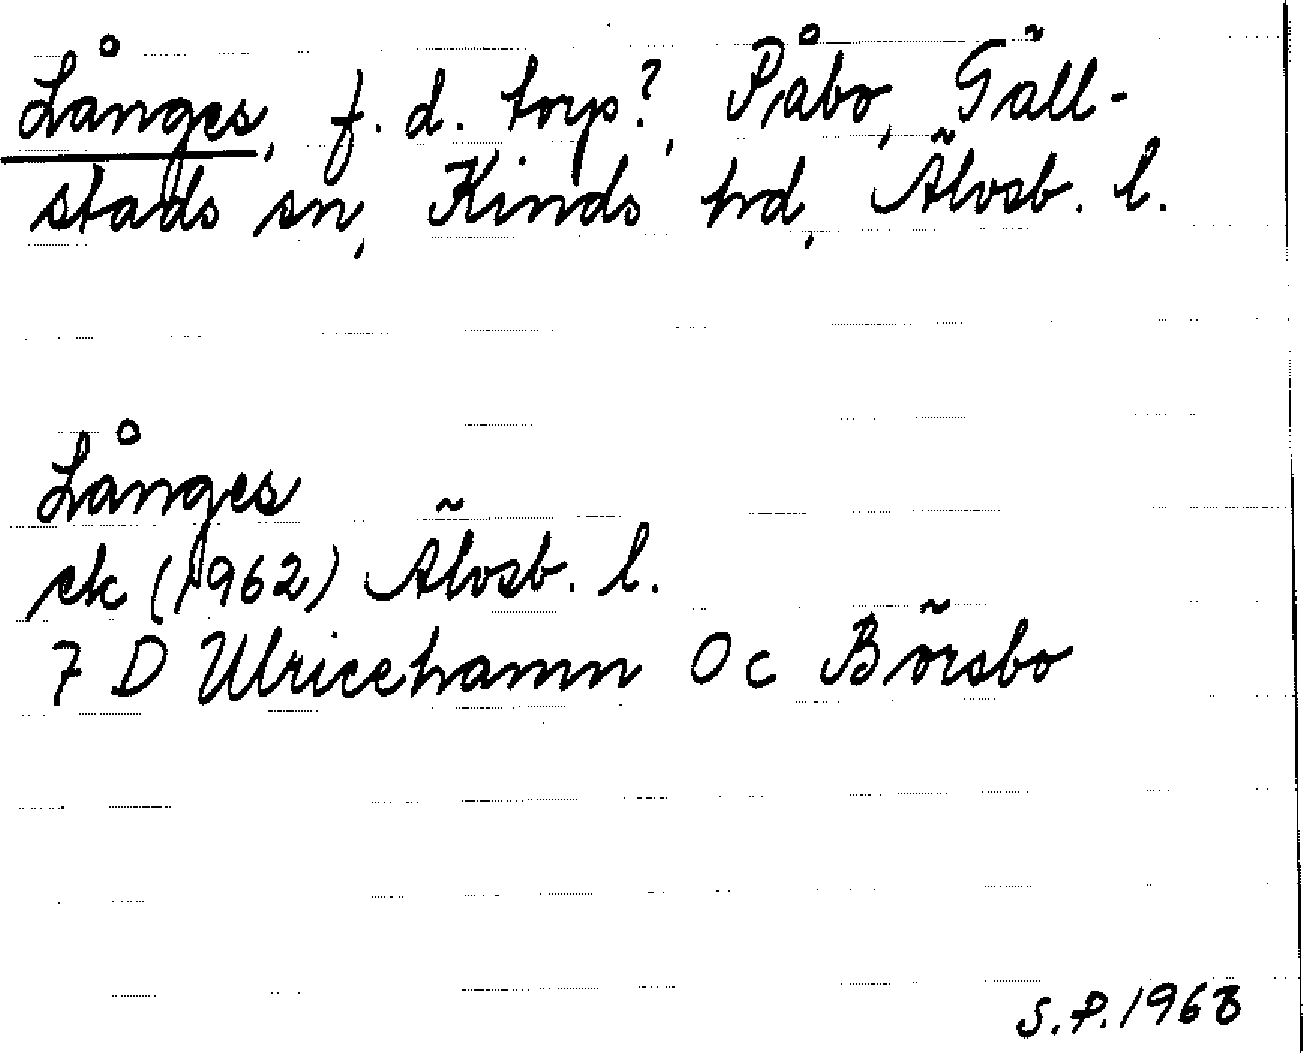 Långes, f. d. torp?, Påbo, Gäll-
stads sn, Kinds hd, Älvsb. l.
Långes
ek (1962) Älvsb. l.
7 D Ulricehamn 0 c Börsbo
S.P. 1968